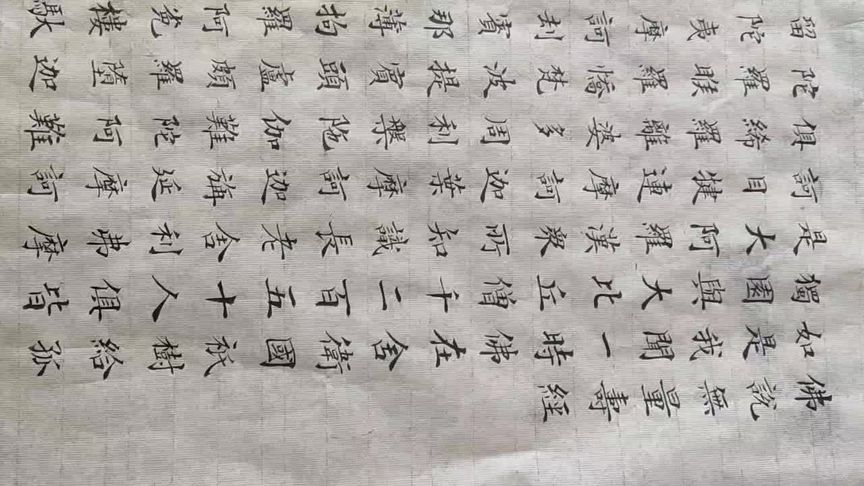 佛說無量壽經
如是我聞一時佛在舍衛國祇樹給孤
獨園與大比丘僧千二百五十人俱皆
是大阿羅漢眾所知識長老舍利弗摩
訶目揵連摩訶迦葉摩訶迦旃延摩訶
俱絺羅離婆多周利槃陀伽難陀阿難
陀羅睺羅憍梵波提賓頭盧頗羅墮迦
留陀夷摩訶劫賓那薄拘羅阿㝹樓馱